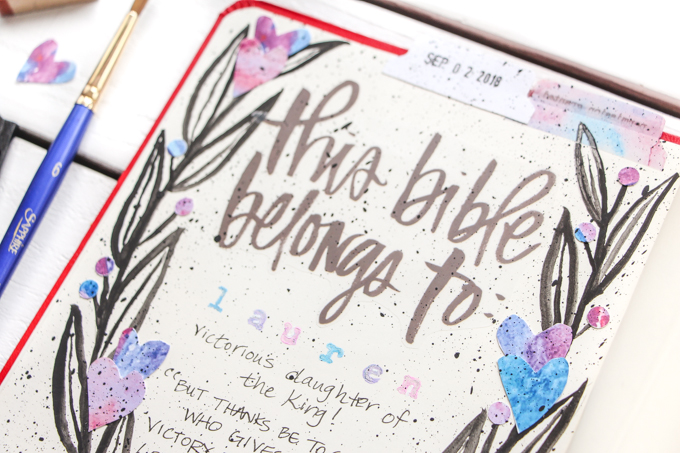 SEP 02 2018
this bible
belongs to:
lauren
victorious daughter of
the King!
"BUT THANKS BE TO
WHO GIVES
VICTORY
6 SAPPHIRE